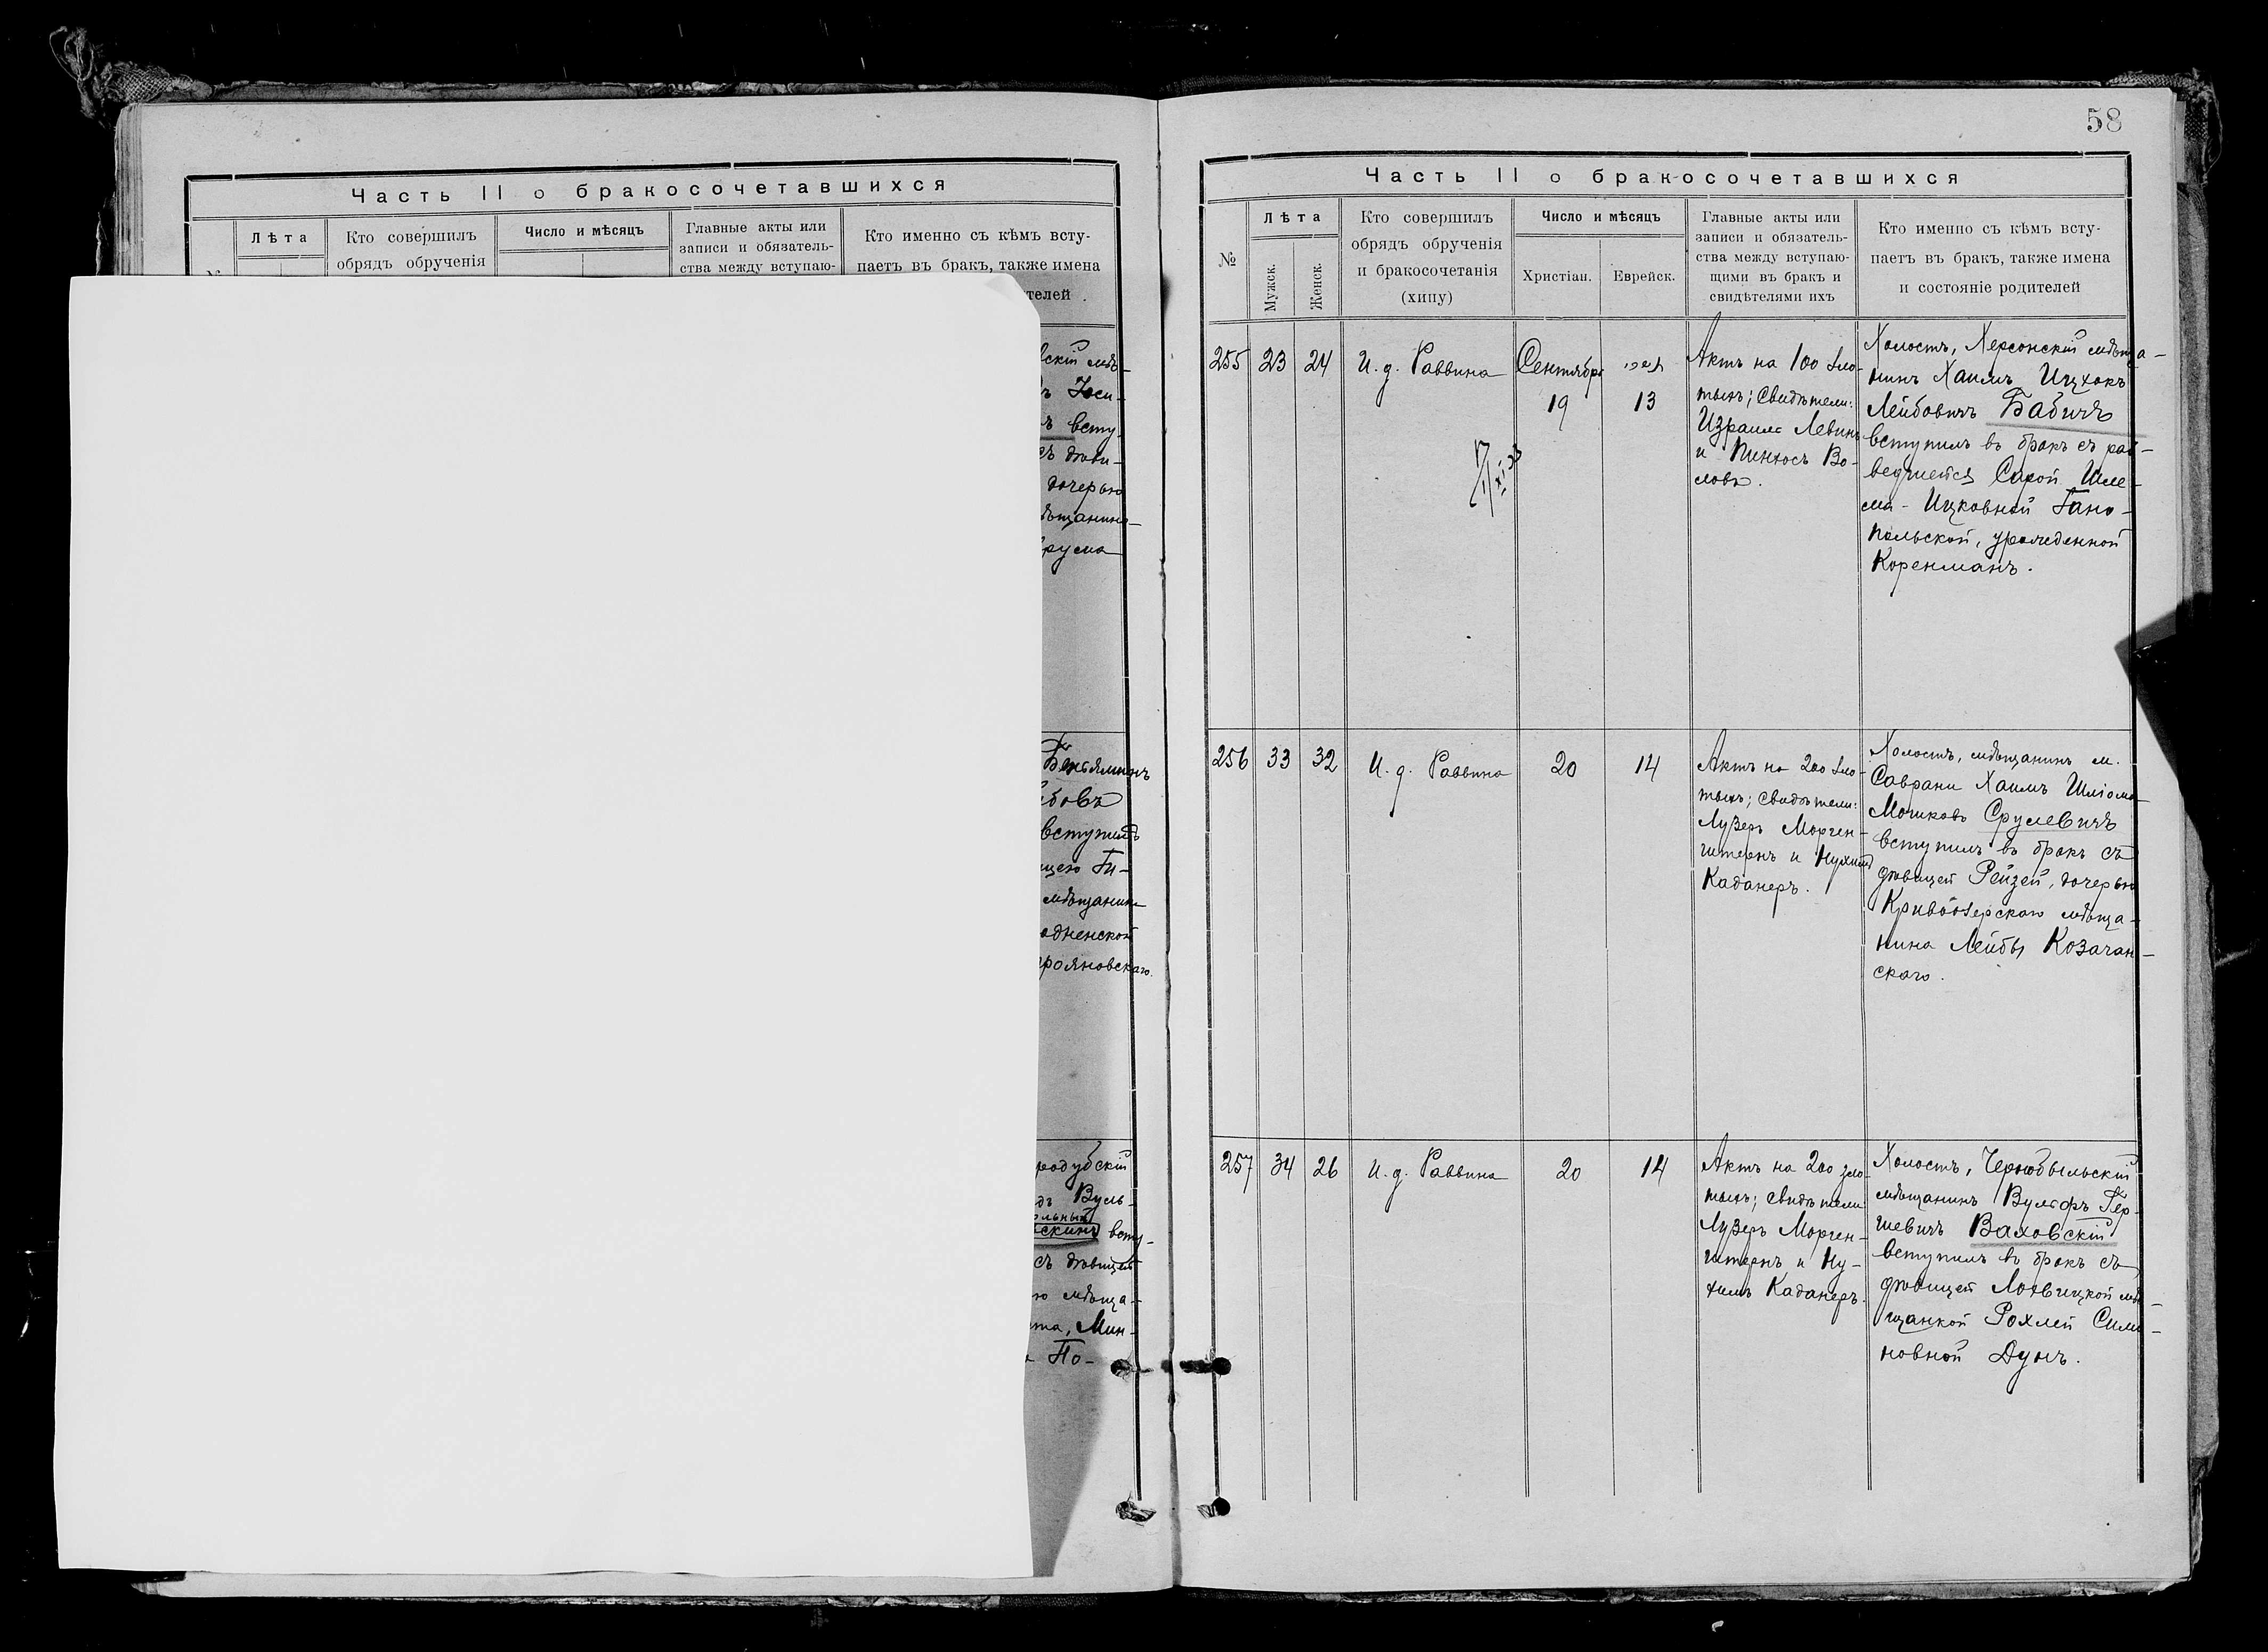 Часть II о бракосочетавшихся
Лѣта
Кто совершилъ
обрядъ обрученія
Число и мѣсяцъ
Главные акты или
записи и обязатель-
ства между вступаю-
Кто именно съ кѣмъ всту-
паетъ въ бракъ, также имена
телей
скій мѣ-
ъ Іоси-
ъ всту-
съ дѣви-
дочерью
ѣщанина
Срула
Бенъяминъ
вступилъ
мѣщанина
рояновскаго.
родубскій
дъ Вуль-
льный
скинъ всту-
съ дѣвицей
ю мѣща-
та, Мин-
По-
58
Часть II о бракосочетавшихся
№
Лѣта
Мужск.
Женск.
Кто совершилъ
обрядъ обрученія
и бракосочетанія
(хипу)
Число и мѣсяцъ
Христіан.
Еврейск.
Главные акты или
записи и обязатель-
ства между вступаю-
щими въ бракъ и
свидѣтелями ихъ
Кто именно съ кѣмъ всту-
паетъ въ бракъ, также имена
и состояніе родителей
255
23
24
И. д. Раввина
Сентября
19
13
Актъ на 100 зло-
тыхъ; свидѣтели:
Израиль Левинъ
и Пинхосъ Во-
ловъ.
Холостъ, Херсонскій мѣща-
нинъ Хаимъ Ицхокъ
Лейбовичъ Бабичъ
вступилъ въ бракъ съ раз-
ведшейся Сарой Шле-
ма-Ицковной Гано-
польской, урожденной
Коренманъ.
256
33
32
И. д. Раввина
20
14
Актъ на 200 зло-
тыхъ; свидѣтели:
Лузеръ Морген-
штернъ и Нухимъ
Каданеръ.
Холостъ, мѣщанинъ м.
Саврани Хаимъ Шліома
Мошковъ Срулевичъ
вступилъ въ бракъ съ
дѣвицей Рейзей, дочерью
Кривоозерскаго мѣща-
нина Лейбы Козачан-
скаго.
257
34
26
И. д. Раввина
20
14
Актъ на 200 зло-
тыхъ; свидѣтели
Лузеръ Морген-
штернъ и Ну-
химъ Каданеръ.
Холостъ, Чернобыльскій
мѣщанинъ Вульфъ Гер-
шевичъ Ваховскій
вступилъ въ бракъ съ
дѣвицей Лохвицкой мѣ-
щанкой Рохлей Симо-
новной Дунъ.